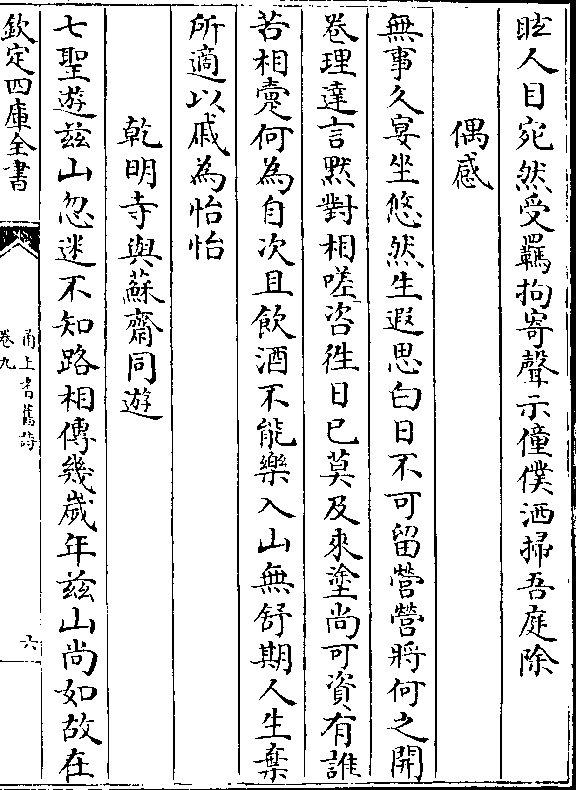 眩人目宛然受羈拘寄聲示僮僕洒掃吾庭除
偶感
無事久宴坐悠然生遐思白日不可留營營將何之開
卷理達言黙對相嗟咨徃日已莫及來塗尚可資有誰
若相賣何為自次且飲酒不能樂入山無舒期人生棄
所適以戚為怡怡
乾明寺與蘇齋同遊
七聖遊兹山忽迷不知路相傳幾歲年兹山尚如故在
欽定四庫全書
甬上耆舊詩
卷九
六